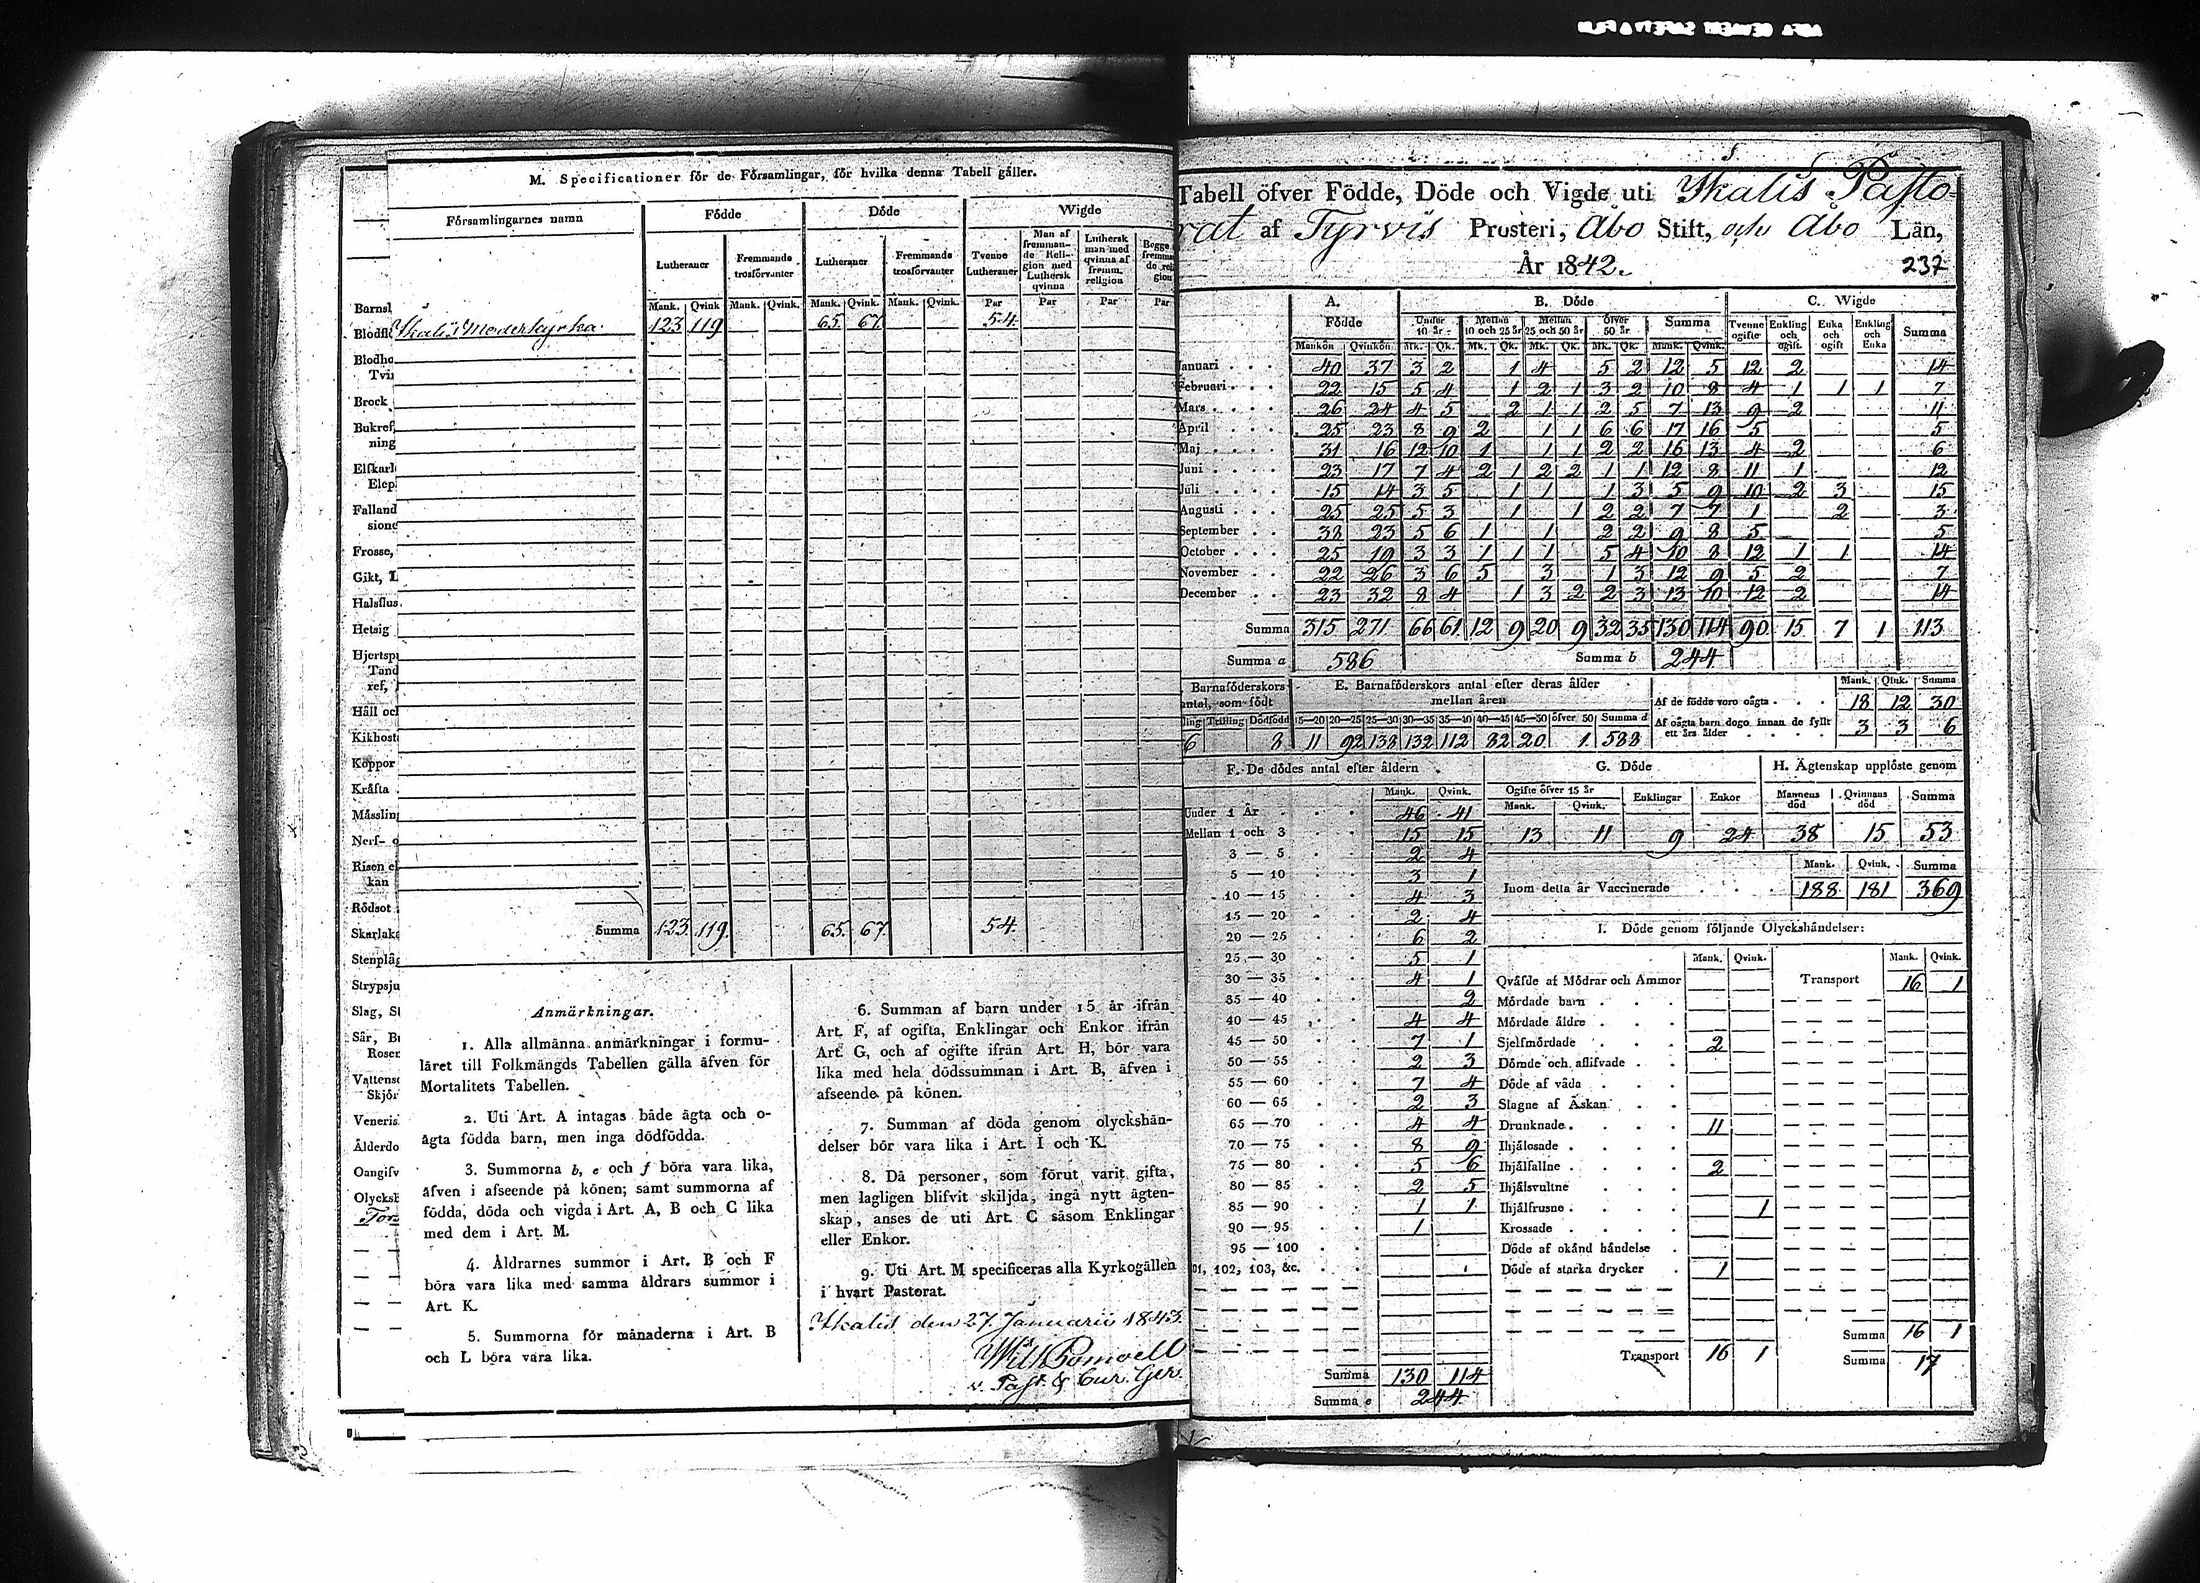 M. Specificationer för de Församlingar, för hvilka denna Tabell gäller.
Församlingarnes namn Födde Döde Wigde
Lutheraner Fremmande trosförvanter Lutheraner Fremmande trosförvanter Tvenne Lutheraner Man af fremmande Religion med Luthersk qvinna Luthersk man med qvinna af fremm. religion Begge
Mank. Qvink Mank. Qvink. Mank. Qvink. Mank. Qvink. Par Par Par Par
Ikalis Moderkyrka 123 119 65. 67. 54.
Summa 123. 119. 65. 67. 54.
Barnsl
Blodflo
Blodho
Tvi
Brock
Bukref,
ning
Elfkarl
Elep
Falland
sione
Frosse,
Gikt,
Halsflus
Hetsig
Hjertsp
Tand
ref,
Håll och
Kikhost
Koppor
Kräfta
Måssling
Nerf- o
Risen el
kan
Rödsot
Skarlak
Stenplåg
Strypsju
Slag, St
Sår, B
Rosen
Vattens
Skjör
Veneris
Ålderdo
Oangifv
Olycksh
Anmärkningar.
1. Alla allmänna anmärkningar i formu-
läret till Folkmängds Tabellen gälla äfven för
Mortalitets Tabellen.
2. Uti Art. A intagas både ägta och o-
ägta födda barn, men inga dödfödda.
3. Summorna b, e och f böra vara lika,
äfven i afseende på könen; samt summorna af
födda, döda och vigda i Art. A, B och C lika
med dem i Art. M.
4. Åldrarnes summor i Art. B och F
böra vara lika med samma åldrars summor i
Art. K.
5. Summorna för månaderna i Art. B
och L böra vara lika.
6. Summan af barn under 15 år ifrån
Art. F, af ogifta, Enklingar och Enkor ifrån
Art. G, och af ogifte ifrån Art. H, bör vara
lika med hela dödssumman i Art. B, äfven i
afseende på könen.
7. Summan af döda genom olyckshän-
delser bör vara lika i Art. I och K.
8. Då personer, som förut varit gifta,
men lagligen blifvit skiljda, ingå nytt ägten-
skap, anses de uti Art. C såsom Enklingar
eller Enkor.
9. Uti Art. M specificeras alla Kyrkogällen
i hvart Pastorat.
Ikalis den 27. Januarii 1843.
v. Past. & Cur. Ger.
Tabell öfver Födde, Döde och Vigde uti Ikalis Pasto-
rat af Tyrvis Prosteri, Åbo Stift, och Åbo Län,
År 1842.
237
A. Födde B. Döde C. Wigde
Under 10 år Mellan 10 och 25 år Mellan 25 och 50 år öfver 50 år Summa Tvenne ogifte Enkling och ogift. Enka och ogift Enkling och Enka Summa
Mankön Qvinkön Mk. Qk. Mk. Qk. Mk. Qk. Mk. Qk. Mank. Qvink.
Januari 40 37 3 2 1 4 5 2 12 5 12 2 14
Februari 22 15 5 4 1 2 1 3 2 10 8 4 1 1 1 7
Mars 26 24 4 5 2 1 1 2 5 7 13 9 2 11
April 25 23 8 9 2 1 1 6 6 17 16 5 5
Maj 31 16 12 10 1 1 1 2 2 16 13 4 2 6
Juni 23 17 7 4 2 1 2 2 1 1 12 8 11 1 12
Juli 15 14 3 5 1 1 1 3 5 9 10 2 3 15
Augusti 25 25 5 3 1 1 2 2 7 7 1 2 3
September 38 23 5 6 1 1 2 2 9 8 5 5
October 25 19 3 3 1 1 1 5 4 10 8 12 1 1 14
November 22 26 3 6 5 3 1 3 12 9 5 2 7
December 23 32 8 4 1 3 2 2 3 13 10 12 2 14
Summa 315 271 66 61 12 9 20 9 32 35 130 114 90 15 7 1 113
Summa a 586 Summa b 244
Barnaföderskors antal, som födt
Trilling Dödfödd
6 8
E. Barnaföderskors antal efter deras ålder
mellan åren
15—20 20—25 25—30 30—35 35—40 40—45 45—50 öfver 50 Summa d
11 92 138 132 112 82 20 1 588
Mank. Qink. Summa
Af de födde voro oägta 18 12 30
Af oägta barn dogo innan de fyllt ett års ålder 3 3 6
F. De dödes antal efter åldern
Mank. Qvink.
Under 1 År 46 41
Mellan 1 och 3 15 15
3 — 5 2 4
5 — 10 3 1
10 — 15 4 3
15 — 20 2 4
20 — 25 6 2
25 — 30 5 1
30 — 35 4 1
35 — 40 2
40 — 45 4 4
45 — 50 7 1
50 — 55 2 3
55 — 60 7 4
60 — 65 2 3
65 — 70 4 4
70 — 75 8 9
75 — 80 5 6
80 — 85 2 5
85 — 90 1 1
90 — 95 1
95 — 100
01, 102, 103, &c.
Summa 130 114
Summa e 244
G. Döde
Ogifte öfver 15 år Enklingar Enkor
Mank. Qvink.
13 11 9 24
H. Ägtenskap upplöste genom
Mannens död Qvinnans död Summa
38 15 53
Mank. Qvink. Summa
Inom detta år Vaccinerade 188 181 369
I. Döde genom följande Olyckshändelser:
Mank. Qvink. Mank. Qvink.
Qväfde af Mödrar och Ammor Transport 16 1
Mördade barn
Mördade äldre
Sjelfmördade 2
Dömde och aflifvade
Döde af våda
Slagne af Åskan
Drunknade 11
Ihjälosade
Ihjälfallne 2
Ihjälsvultne
Ihjälfrusne 1
Krossade
Döde af okänd händelse
Döde af starka drycker 1
Transport 16 1
Summa 16 1
Summa 17